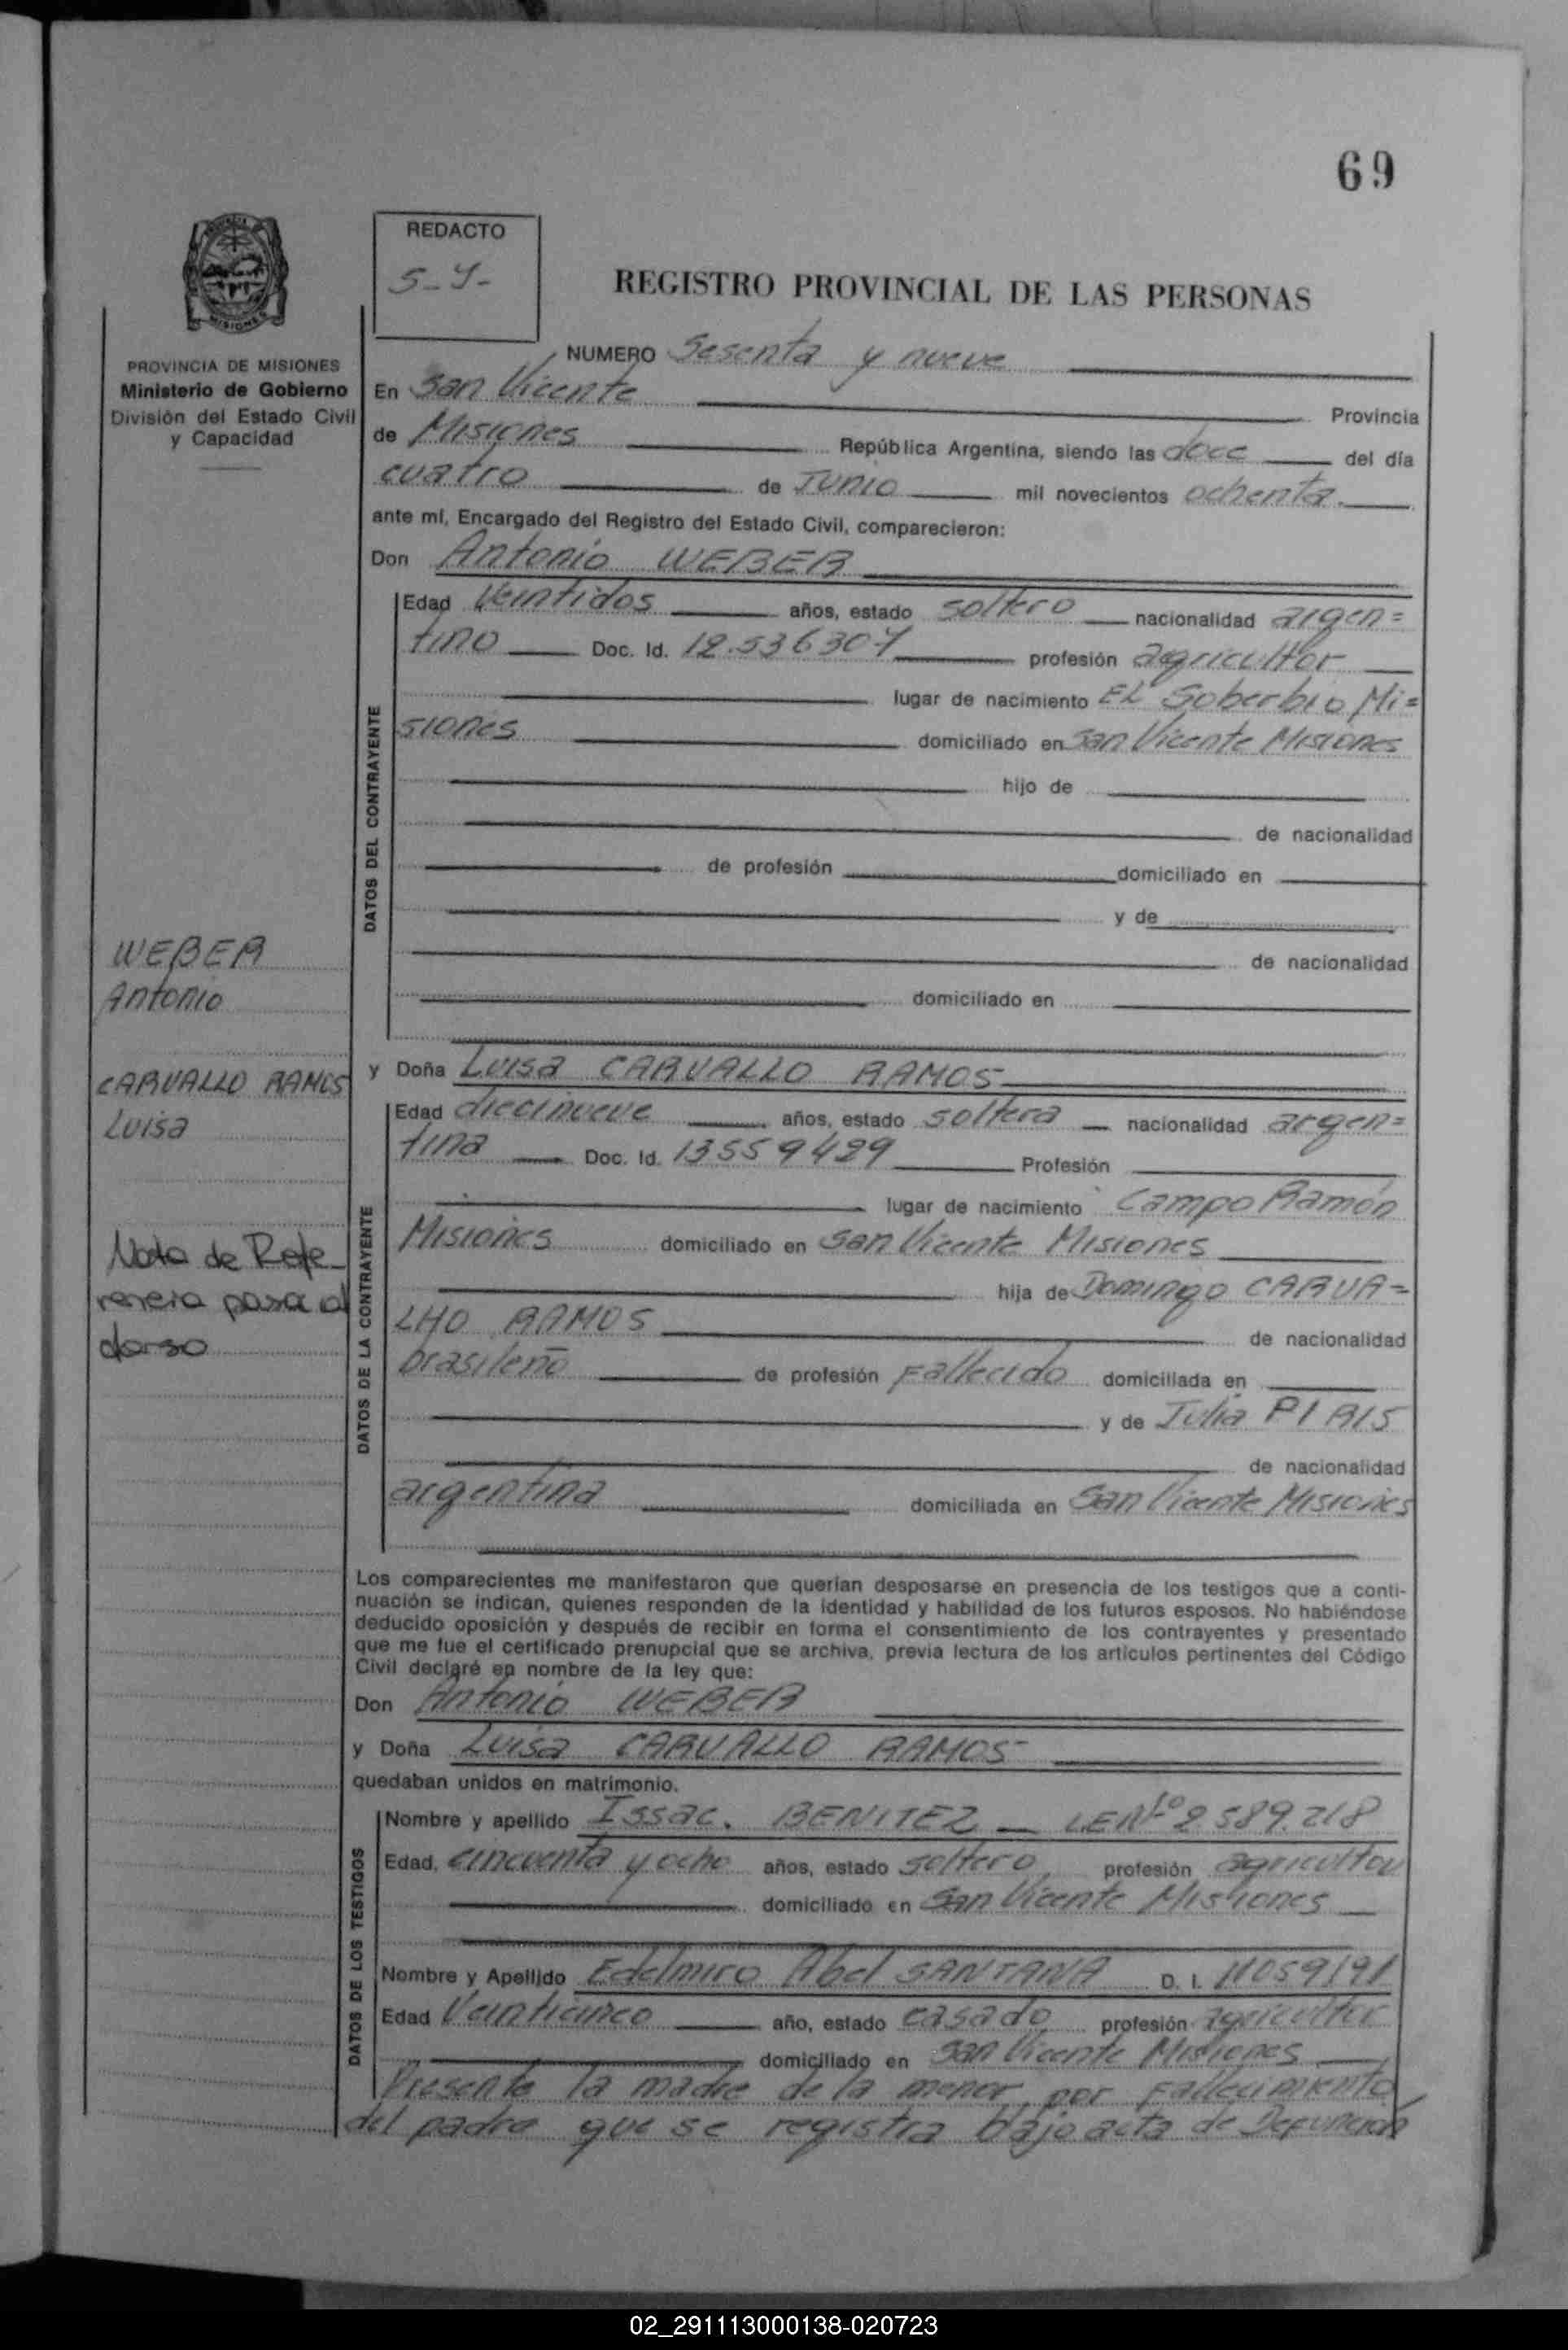 69
REDACTO
5-Y-
REGISTRO PROVINCIAL DE LAS PERSONAS
PROVINCIA DE MISIONES
Ministerio de Gobierno
División del Estado Civil
y Capacidad
NUMERO Sesenta y nueve
En San Vicente Provincia
de Misiones República Argentina, siendo las doce del día
cuatro de Junio mil novecientos ochenta.
ante mí, Encargado del Registro del Estado Civil, comparecieron:
Don Antonio WEBER
DATOS DEL CONTRAYENTE
Edad Veintidos años, estado soltero nacionalidad argen=
tino Doc. Id. 12.536307 profesión agricultor
lugar de nacimiento EL Soberbio Mi=
siones domiciliado en San Vicente Misiones
hijo de
de nacionalidad
de profesión domiciliado en
y de
de nacionalidad
domiciliado en
WEBER
Antonio
CARVALLO RAMOS
Luisa
Nota de Refe-
rencia pasa al
dorso
y Doña Luisa CARVALLO RAMOS
DATOS DE LA CONTRAYENTE
Edad diecinueve años, estado soltera nacionalidad argen=
tina Doc. Id. 13559429 Profesión
lugar de nacimiento Campo Ramón
Misiones domiciliado en San Vicente Misiones
hija de Domingo CARVA=
LHO RAMOS de nacionalidad
brasileño de profesión Fallecido domiciliada en
y de Julia PIRIS
de nacionalidad
argentina domiciliada en San Vicente Misiones
Los comparecientes me manifestaron que querían desposarse en presencia de los testigos que a conti-
nuación se indican, quienes responden de la identidad y habilidad de los futuros esposos. No habiéndose
deducido oposición y después de recibir en forma el consentimiento de los contrayentes y presentado
que me fue el certificado prenupcial que se archiva, previa lectura de los artículos pertinentes del Código
Civil declaré en nombre de la ley que:
Don Antonio WEBER
y Doña Luisa CARVALLO RAMOS
quedaban unidos en matrimonio.
DATOS DE LOS TESTIGOS
Nombre y apellido Issac. BENITEZ LE Nº 2589.218
Edad, cincuenta y ocho años, estado soltero profesión agricultor
domiciliado en San Vicente Misiones
Nombre y Apellido Edelmiro Abel SANTANA D. I. 11059191
Edad Veinticinco año, estado casado profesión agricultor
domiciliado en San Vicente Misiones
Presente la madre de la menor por Fallecimiento
del padre que se registra bajo acta de Defunción
02_291113000138-020723